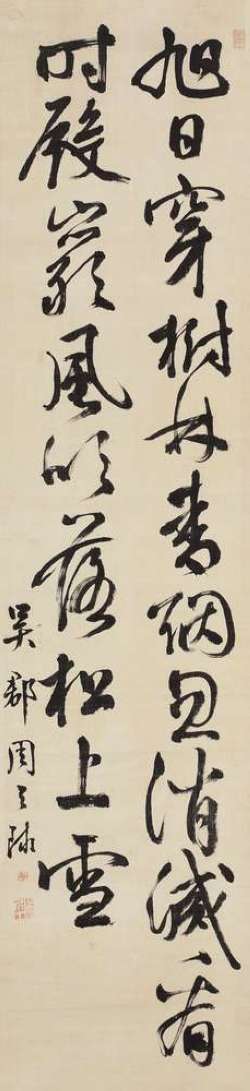 旭日穿樹林香烟忽消滅有
時殿巖風吹落松上雪
吳郡周天球